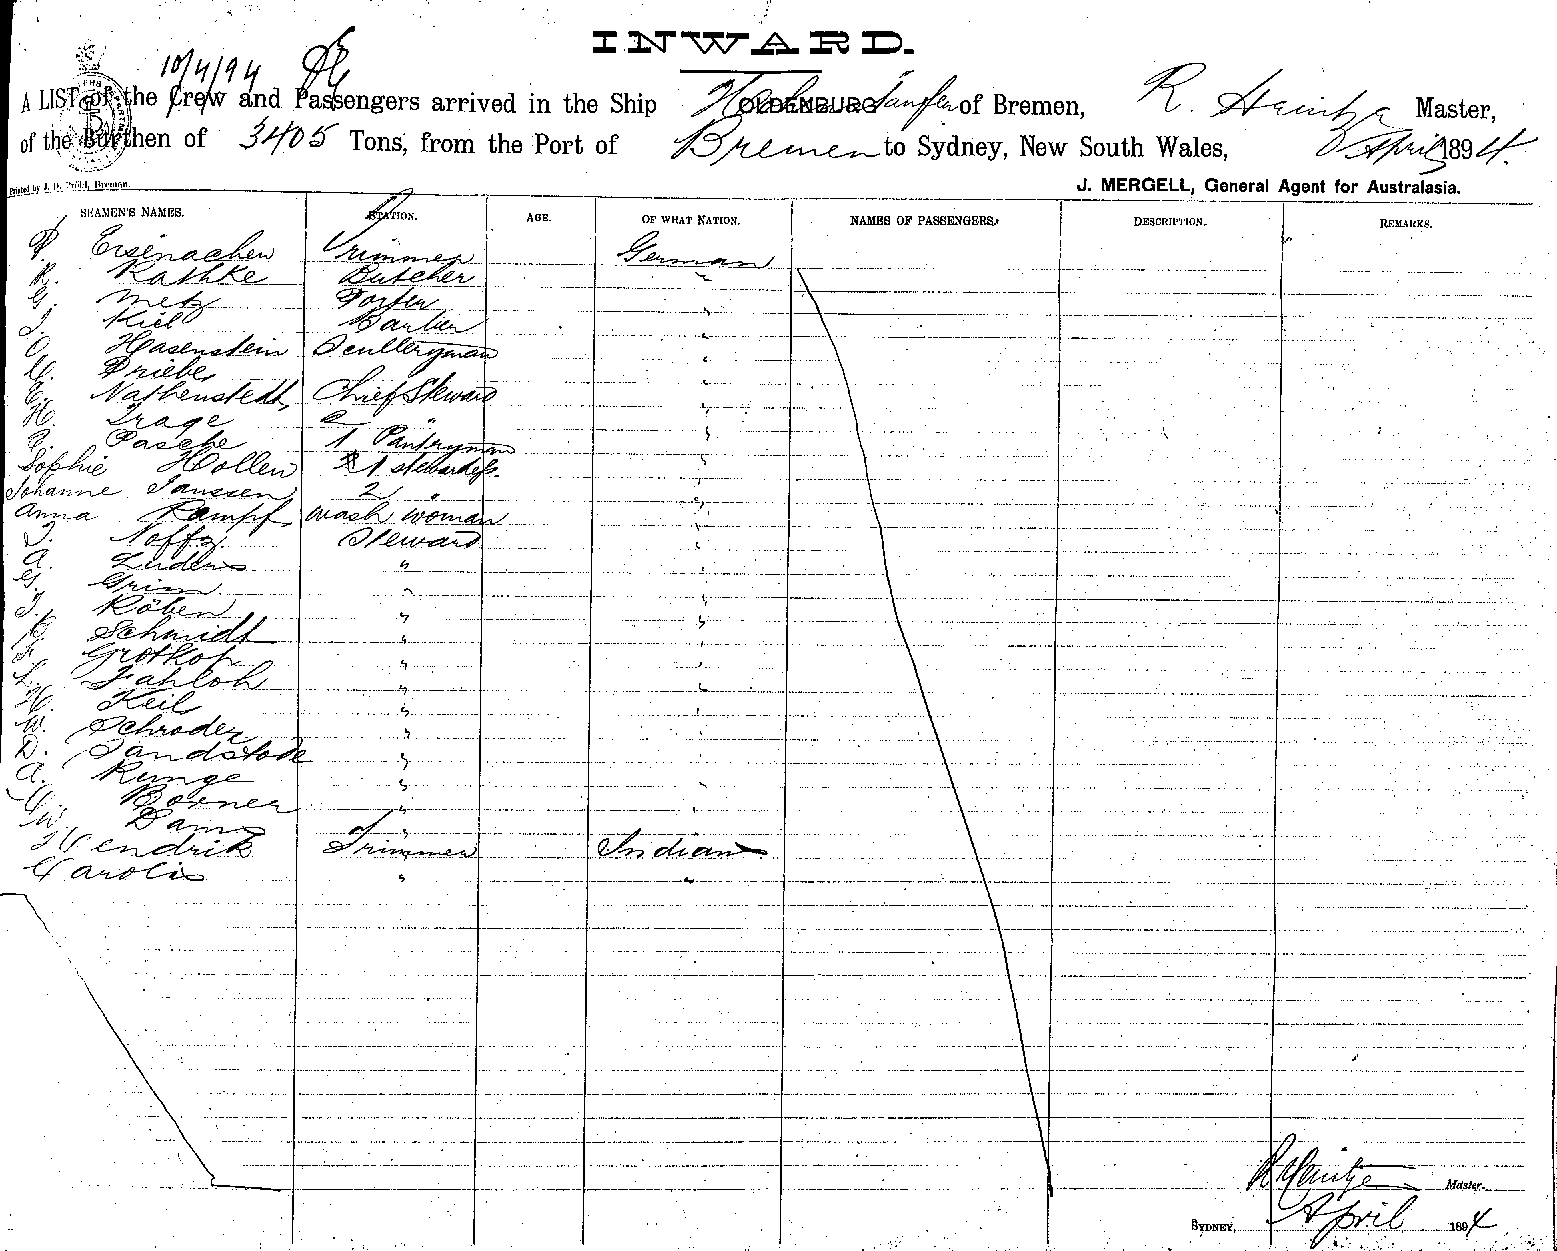 INWARD.
10/4/94
A LIST of the Crew and Passengers arrived in the Ship OLDENBURG of Bremen, R. Heintze Master,
of the Burthen of 3405 Tons, from the Port of Bremen to Sydney, New South Wales, April 1894.
Printed by J. D. Bremen.
J. MERGELL, General Agent for Australasia.
SEAMEN'S NAMES. STATION. AGE. OF WHAT NATION. NAMES OF PASSENGERS. DESCRIPTION. REMARKS.
Eisenacher Trimmer German
R. Rathke Butcher "
G. Metz Porter "
Kiel Barber "
O. Hasenstein Sculleryman "
Priebe "
Nathenstedt Chief Steward "
H. Trage 2 " "
Pasche 1 Pantryman "
Sophie Hollen 1 stewardess. "
Johanne Janssen 2 " "
Anna Kampf wash woman "
Noffz Steward "
A. Luders " "
G. Grim " "
J. Röben " "
Schmidt " "
Grotkop " "
Fahloh " "
H. Keil " "
W. Schroder " "
D. Sandstede "
A. Runge " "
Borner "
W. Dams "
Hendrik Trimmer Indian
Carolis " "
R Heintze Master.
SYDNEY, April 1894